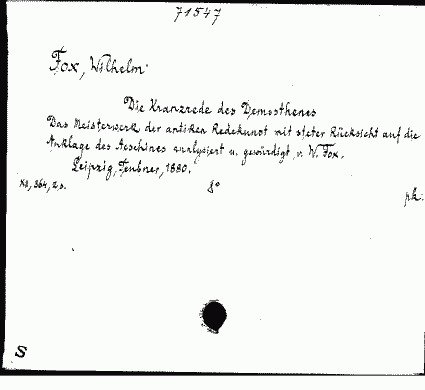 71547
Fox, Wilhelm.
Die Kranzrede des Demosthenes
Das Meisterwerk der antiken Redekunst mit steter Rücksicht auf die
Anklage des Aeschines analysiert u. gewürdigt v. W. Fox.
Leipzig, Teubner, 1880.
XII, 364, 2 s. 8° pk.
S